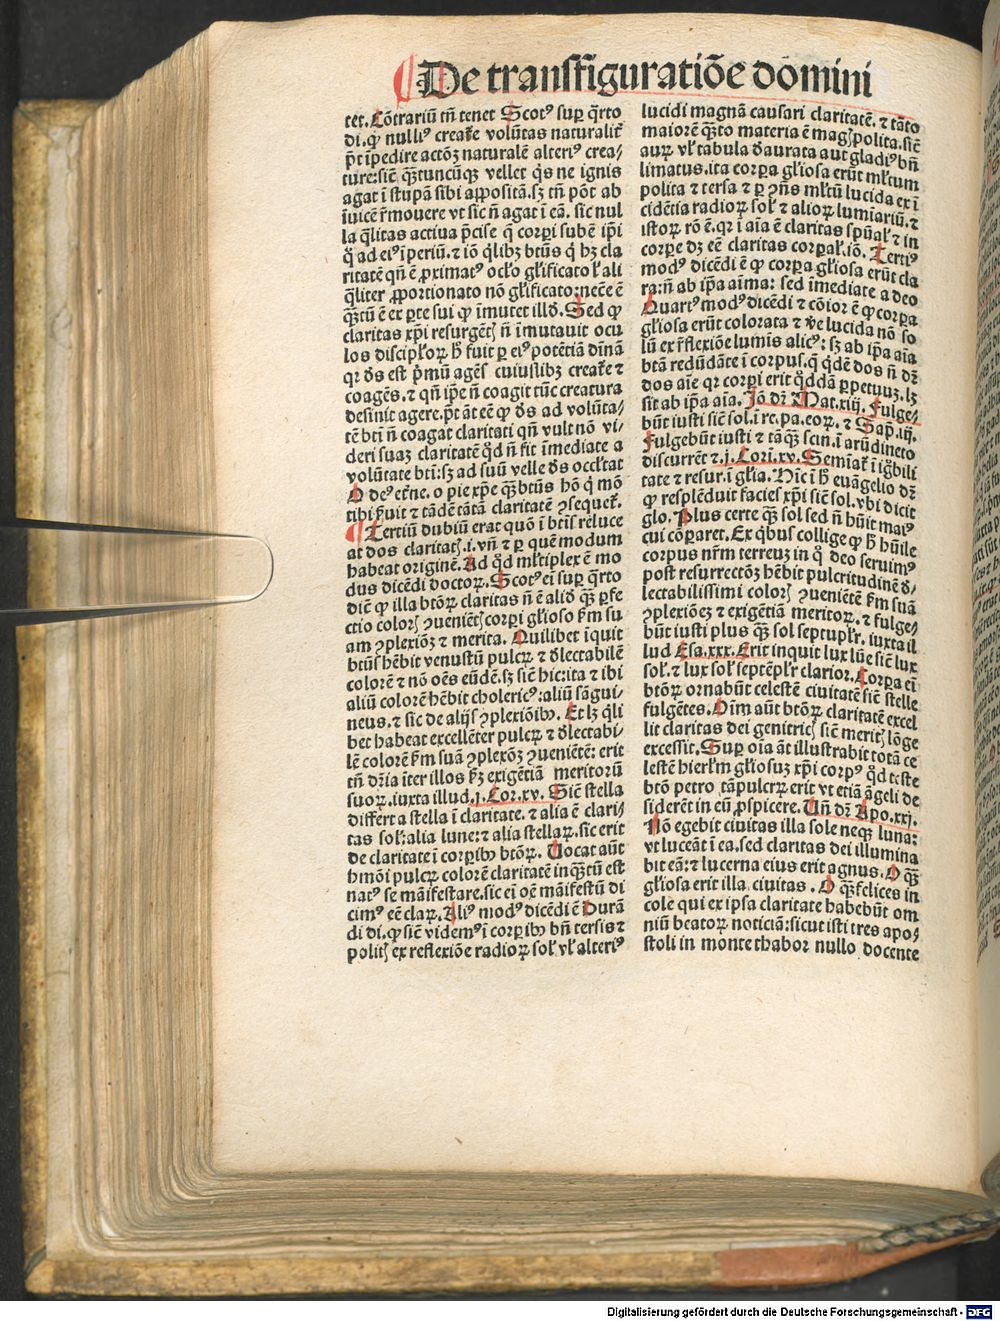 De transfiguratiōe domini
tet. Cōtrariū tn̄ tenet Scotꝰ sup q̄rto
di. ꝙ nulliꝰ create volūtas naturalit̄
p̄t īpedire actōꝫ naturalē alteriꝰ crea/
ture: siē qꝫtuncūqꝫ vellet q̄s ne ignis
agat ī stupā sibi appositā. sꝫ tn̄ pōt ab
īuicē r̄mouere vt sic n̄ agat ī eā. sic nul
la q̄litas actiua p̄cise q̄ corpi subē ip̄i
q̊ ad eiꝰ īperiū. ⁊ iō q̄libꝫ btūs q̊ hꝫ cla
ritatē qn̄ ē ꝓximatꝰ ocło głificato ł ali
q̄liter ꝓportionato nō głificato: necē ē
qꝫtū ē ex pte sui ꝙ īmutet illō. Sed ꝙ
claritas xp̄i resurgētꝭ n̄ īmutauit ocu
los discipłoꝝ h̄ fuit ꝑ eiꝰ potētiā dīnā
qꝛ ds̄ est p̄mū agēs cuiuslibꝫ create ⁊
coagēs. ⁊ qn̄ ip̄e n̄ coagit tūc creatura
desinit agere. p̄t āt eē ꝙ ds̄ ad volūta/
tē bti n̄ coagat claritati qn̄ vult nō vi/
deri suaꝫ claritatē q̊d n̄ fit īmediate a
volūtate bti: sꝫ ad suū velle ds̄ occłtat
O deꝰ et̄ne. o pie xp̄e qꝫ btūs hō q̊ mō
tibi ẜuit ⁊ tādē tātā claritatē ꝯsequet̄.
¶ Tertiū dubiū erat quō ī btīs reluce
at dos claritatꝭ. i. vn̄ ⁊ ꝑ quē modum
habeat originē. Ad q̊d młtiplex ē mo
dus dicēdi doctoꝝ. Scotꝰ ei sup q̄rto
diē ꝙ illa btōꝝ claritas n̄ ē aliō qꝫ pfe
ctio colorꝭ ꝯueniētꝭ corpi głioso ẜm su
am ꝯplexiōꝫ ⁊ merita. Quilibet īquit
btūs hēbit venustū pulcꝝ ⁊ dlectabilē
colorē ⁊ nō oēs eūdē. sꝫ siē hic: ita ⁊ ibi
aliū colorē hēbit cholericꝰ: aliū sāgui/
neus. ⁊ sic de alijs ꝯplexiōibꝰ. Et lꝫ q̄li
bet habeat excellēter pulcꝝ ⁊ dlectabi/
lē colorē ẜm suā ꝯplexōꝫ ꝯueniētē: erit
tn̄ dr̄ia īter illos ẜꝫ exigētiā meritorū
suoꝝ. iuxta illud. j. Cor. xv. Siē stella
differt a stella ī claritate. ⁊ alia ē clari/
tas soł: alia lune: ⁊ alia stellaꝝ. sic erit
de claritate ī corpibꝰ btōꝝ. Uocat aūt
hmōi pulcꝝ colorē claritatē inqꝫtū est
natꝰ se māifestare. sic ei oē māifestū di
cimꝰ eē claꝝ. Aliꝰ modꝰ dicēdi ē Durā
di di. ꝙ siē videmꝰ ī corpibꝰ bn̄ tersis ⁊
politꝭ ex reflexiōe radioꝝ soł vł alteriꝰ
lucidi magnā causari claritatē. ⁊ tāto
maiorē qꝫto materia ē magꝭ polita. siē
auꝝ vł tabula daurata aut gladiꝰ bn̄
limatus. ita corpa głiosa erūt młtum
polita ⁊ tersa ⁊ ꝑ ꝯn̄s młtū lucida ex ī
cidētia radioꝝ soł ⁊ alioꝝ lumīariū. ⁊
istoꝝ rō ē. qꝛ ī aīa ē claritas spūał ⁊ in
corpe dꝫ eē claritas corpał. iō. Tertiꝰ
modꝰ dicēdi ē ꝙ corpa głiosa erūt cla
ra: n̄ ab ip̄a aīma: sed īmediate a deo
Quartꝰ modꝰ dicēdi ⁊ cōior ē ꝙ corpa
głiosa erūt colorata ⁊ ꝟe lucida nō so
lū ex r̄flexiōe lumīs alicꝰ: sꝫ ab ip̄a aīa
btā redūdāte ī corpus. q̄ q̊dē dos n̄ dꝛ̄
dos aīe qꝛ corpi erit q̊ddā ppetuuꝫ. lꝫ
sit ab ip̄a aīa. Jō dꝛ̄ Mat. xiij. Fulge/
būt iusti siē sol. ī re. pa. eoꝝ. ⁊ Sap̄. iij.
Fulgebūt iusti ⁊ tāqꝫ scīn. ī arūdineto
discurrēt ⁊. j. Cori. xv. Semīat̄ ī ig̊bili
tate ⁊ resur. ī głia. Hīc ī h̄ euāgelio dꝛ̄
ꝙ resplēduit facies xp̄i siē sol. vbi dicit
glo. Plus certe qꝫ sol sed n̄ hūit maiꝰ
cui cōparet. Ex q̊bus collige ꝙ h̄ hūile
corpus nr̄m terreuꝫ in q̊ deo seruimꝰ
post resurrectōꝫ hēbit pulcritudinē d/
lectabilissimi colorꝭ ꝯueniētē ẜm suā
ꝯplexiōeꝫ ⁊ exigētiā meritoꝝ. ⁊ fulge/
būt iusti plus qꝫ sol septupłr. iuxta il
lud Esa. xxx. Erit inquit lux lūe siē lux
soł. ⁊ lux soł septēpłr clarior. Corpa ei
btōꝝ ornabūt celestē ciuitatē siē stelle
fulgētes. Oīm aūt btōꝝ claritatē excel
lit claritas dei genitricꝭ siē meritꝭ lōge
excessit. Sup oīa āt illustrabit totā ce
lestē hierłm głiosuꝫ xp̄i corpꝰ q̊d teste
btō petro tā pulcꝝ erit vt etiā āgeli de
siderēt in eū ꝓspicere. Un̄ dꝛ̄ Apo. xxj.
Nō egebit ciuitas illa sole neqꝫ luna:
vt luceāt ī ea. sed claritas dei illumina
bit eā: ⁊ lucerna eius erit agnus. O qꝫ
głiosa erit illa ciuitas. O qꝫ felices in
cole qui ex ipsa claritate habebūt om
niū beatoꝝ noticiā: sicut isti tres apo/
stoli in monte thabor nullo docente
Digitalisierung gefördert durch die Deutsche Forschungsgemeinschaft - DFG